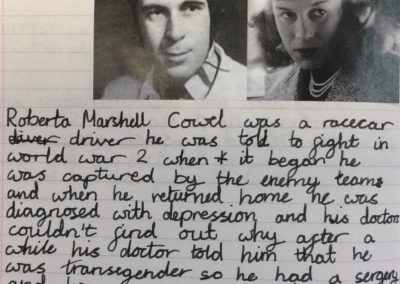 Roberta Marshall Cowel was a racecar
driver he was told to fight in
world war 2 when* it began he
was captured by the enemy teams
and when he returned home he was
diagnosed with depression and his doctor
couldn't find out why after a
while his doctor told him that he
was transgender so he had a sergery